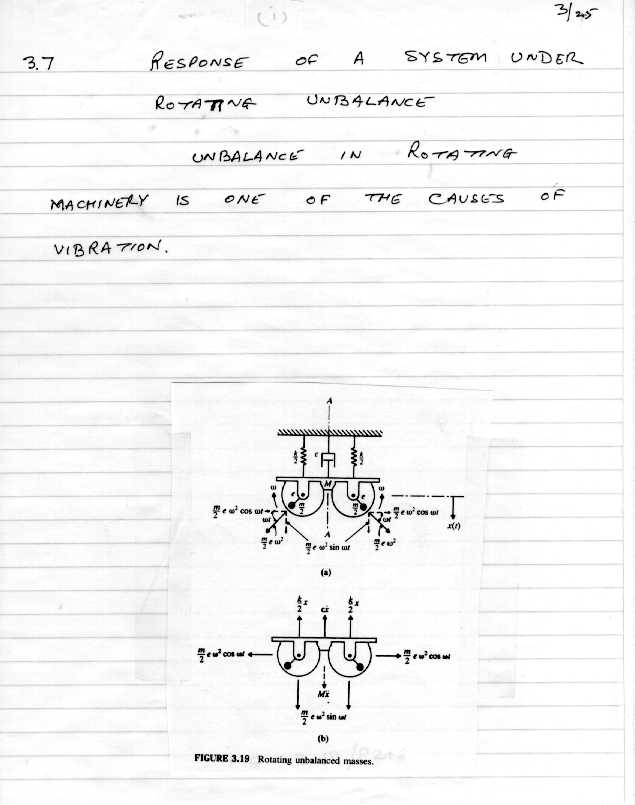 (i)
3/205
3.7 RESPONSE OF A SYSTEM UNDER
ROTATING UNBALANCE
UNBALANCE IN ROTATING
MACHINERY IS ONE OF THE CAUSES OF
VIBRATION.
A
k/2 c k/2
M
ω e m/2 m/2 e ω
m/2 e ω² cos ωt ωt ωt m/2 e ω² cos ωt
x(t)
A
m/2 e ω² m/2 e ω² sin ωt m/2 e ω²
(a)
k/2 x cẋ k/2 x
m/2 e ω² cos ωt m/2 e ω² cos ωt
Mẍ
m/2 e ω² sin ωt
(b)
FIGURE 3.19 Rotating unbalanced masses.